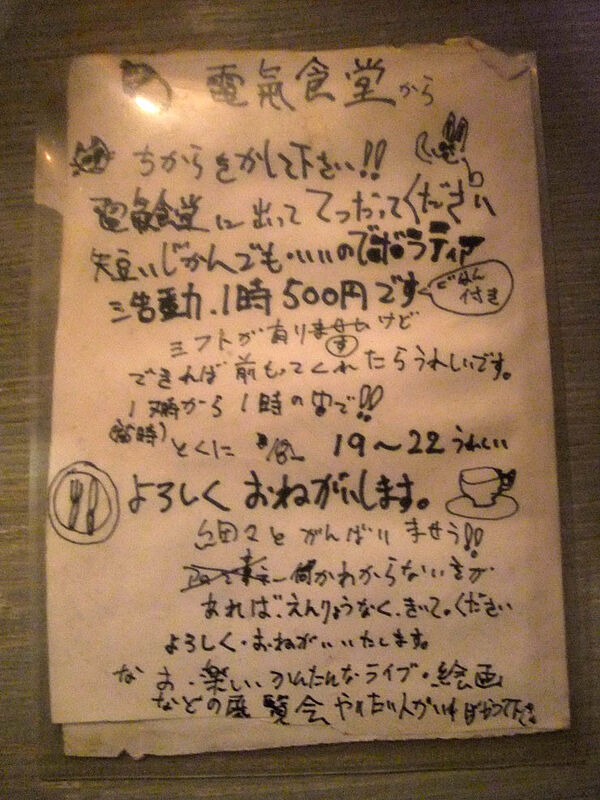 電氣食堂から
ちからをかして下さい!!
電気食堂に出って てつだってください
短いじかんでも・いいのでボラティア
活動.1時500円です
ごはん付き
シフトが有りますけど
できれば前もってくれたらうれしいです。
から1時の中で!!
とくに 19〜22うれしい
よろしくおねがいします。
細々とがんばりませう!!
何かわからない
あれば.えんりょうなく.きいて.ください
よろしく・おねがいいたします。
なお・楽しい.かんたんなライブ・絵画
などの展覧会やりたい人がいれば